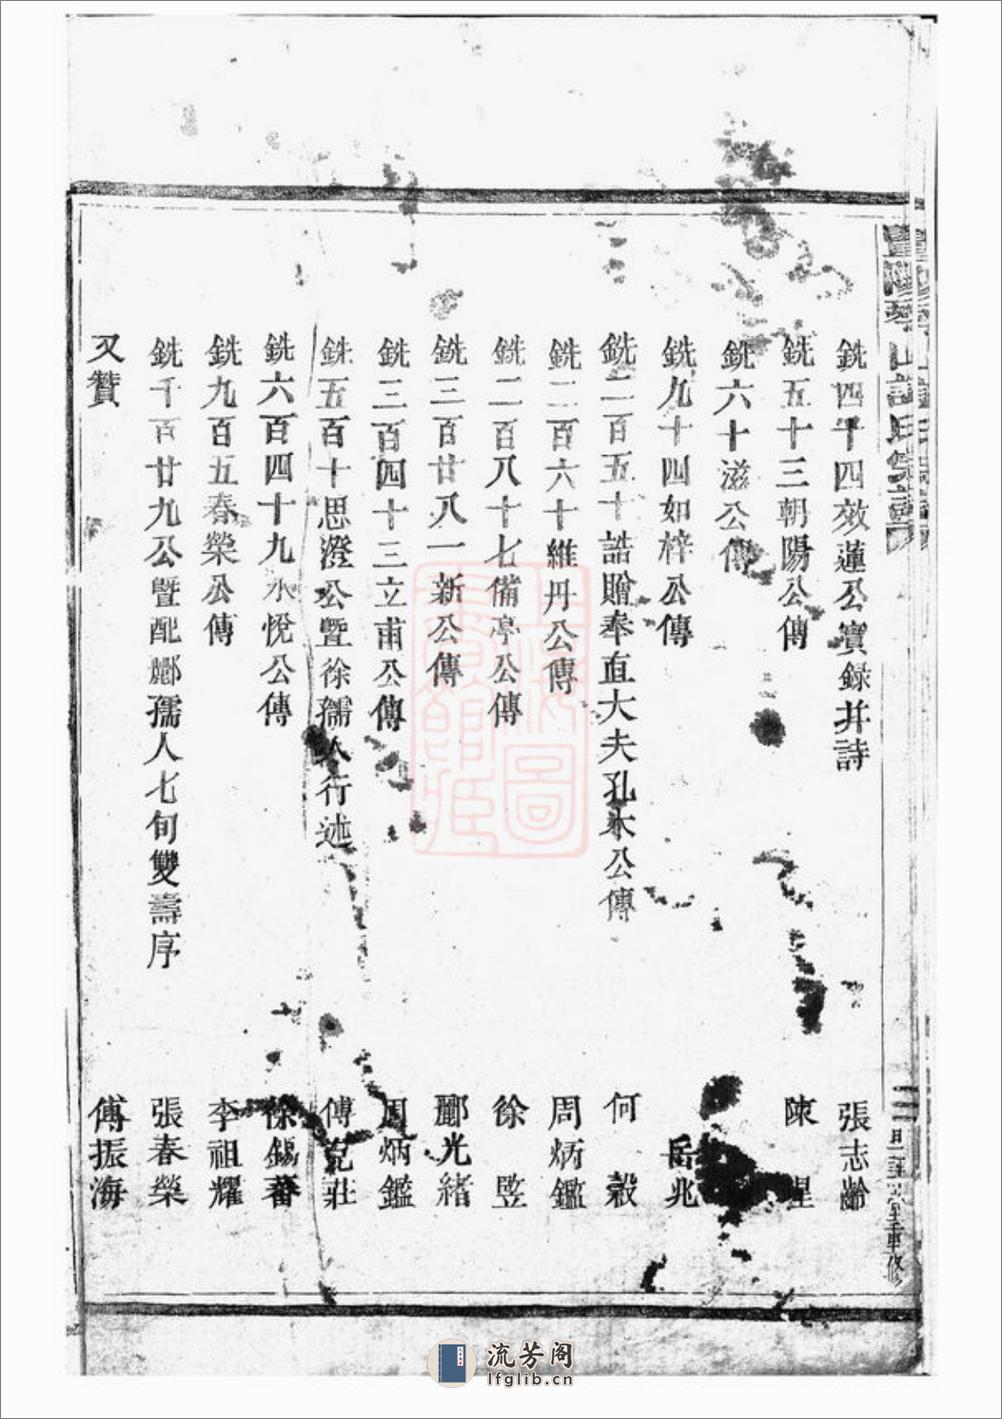 銑四十四效蓮公實録并詩 張志齡
銑五十三朝陽公傳 陳
銑六十滋公傳
銑九十四如梓公傳 岳兆
銑二百五十誥贈奉直大夫孔木公傳 何穀
銑二百六十維丹公傳 周炳鑑
銑二百八十七備亭公傳 徐
銑三百廿八一新公傳 酈光緒
銑三百四十三立甫公傳 周炳鑑
銑五百十思澄公暨徐孺人行述 傅克莊
銑六百四十九永悅公傳 徐錫蕃
銑九百五春榮公傳 李祖耀
銑千百廿九公暨配酈孺人七旬雙壽序 張春榮
又贊 傅振海
重修
流芳阁
lfglib.cn